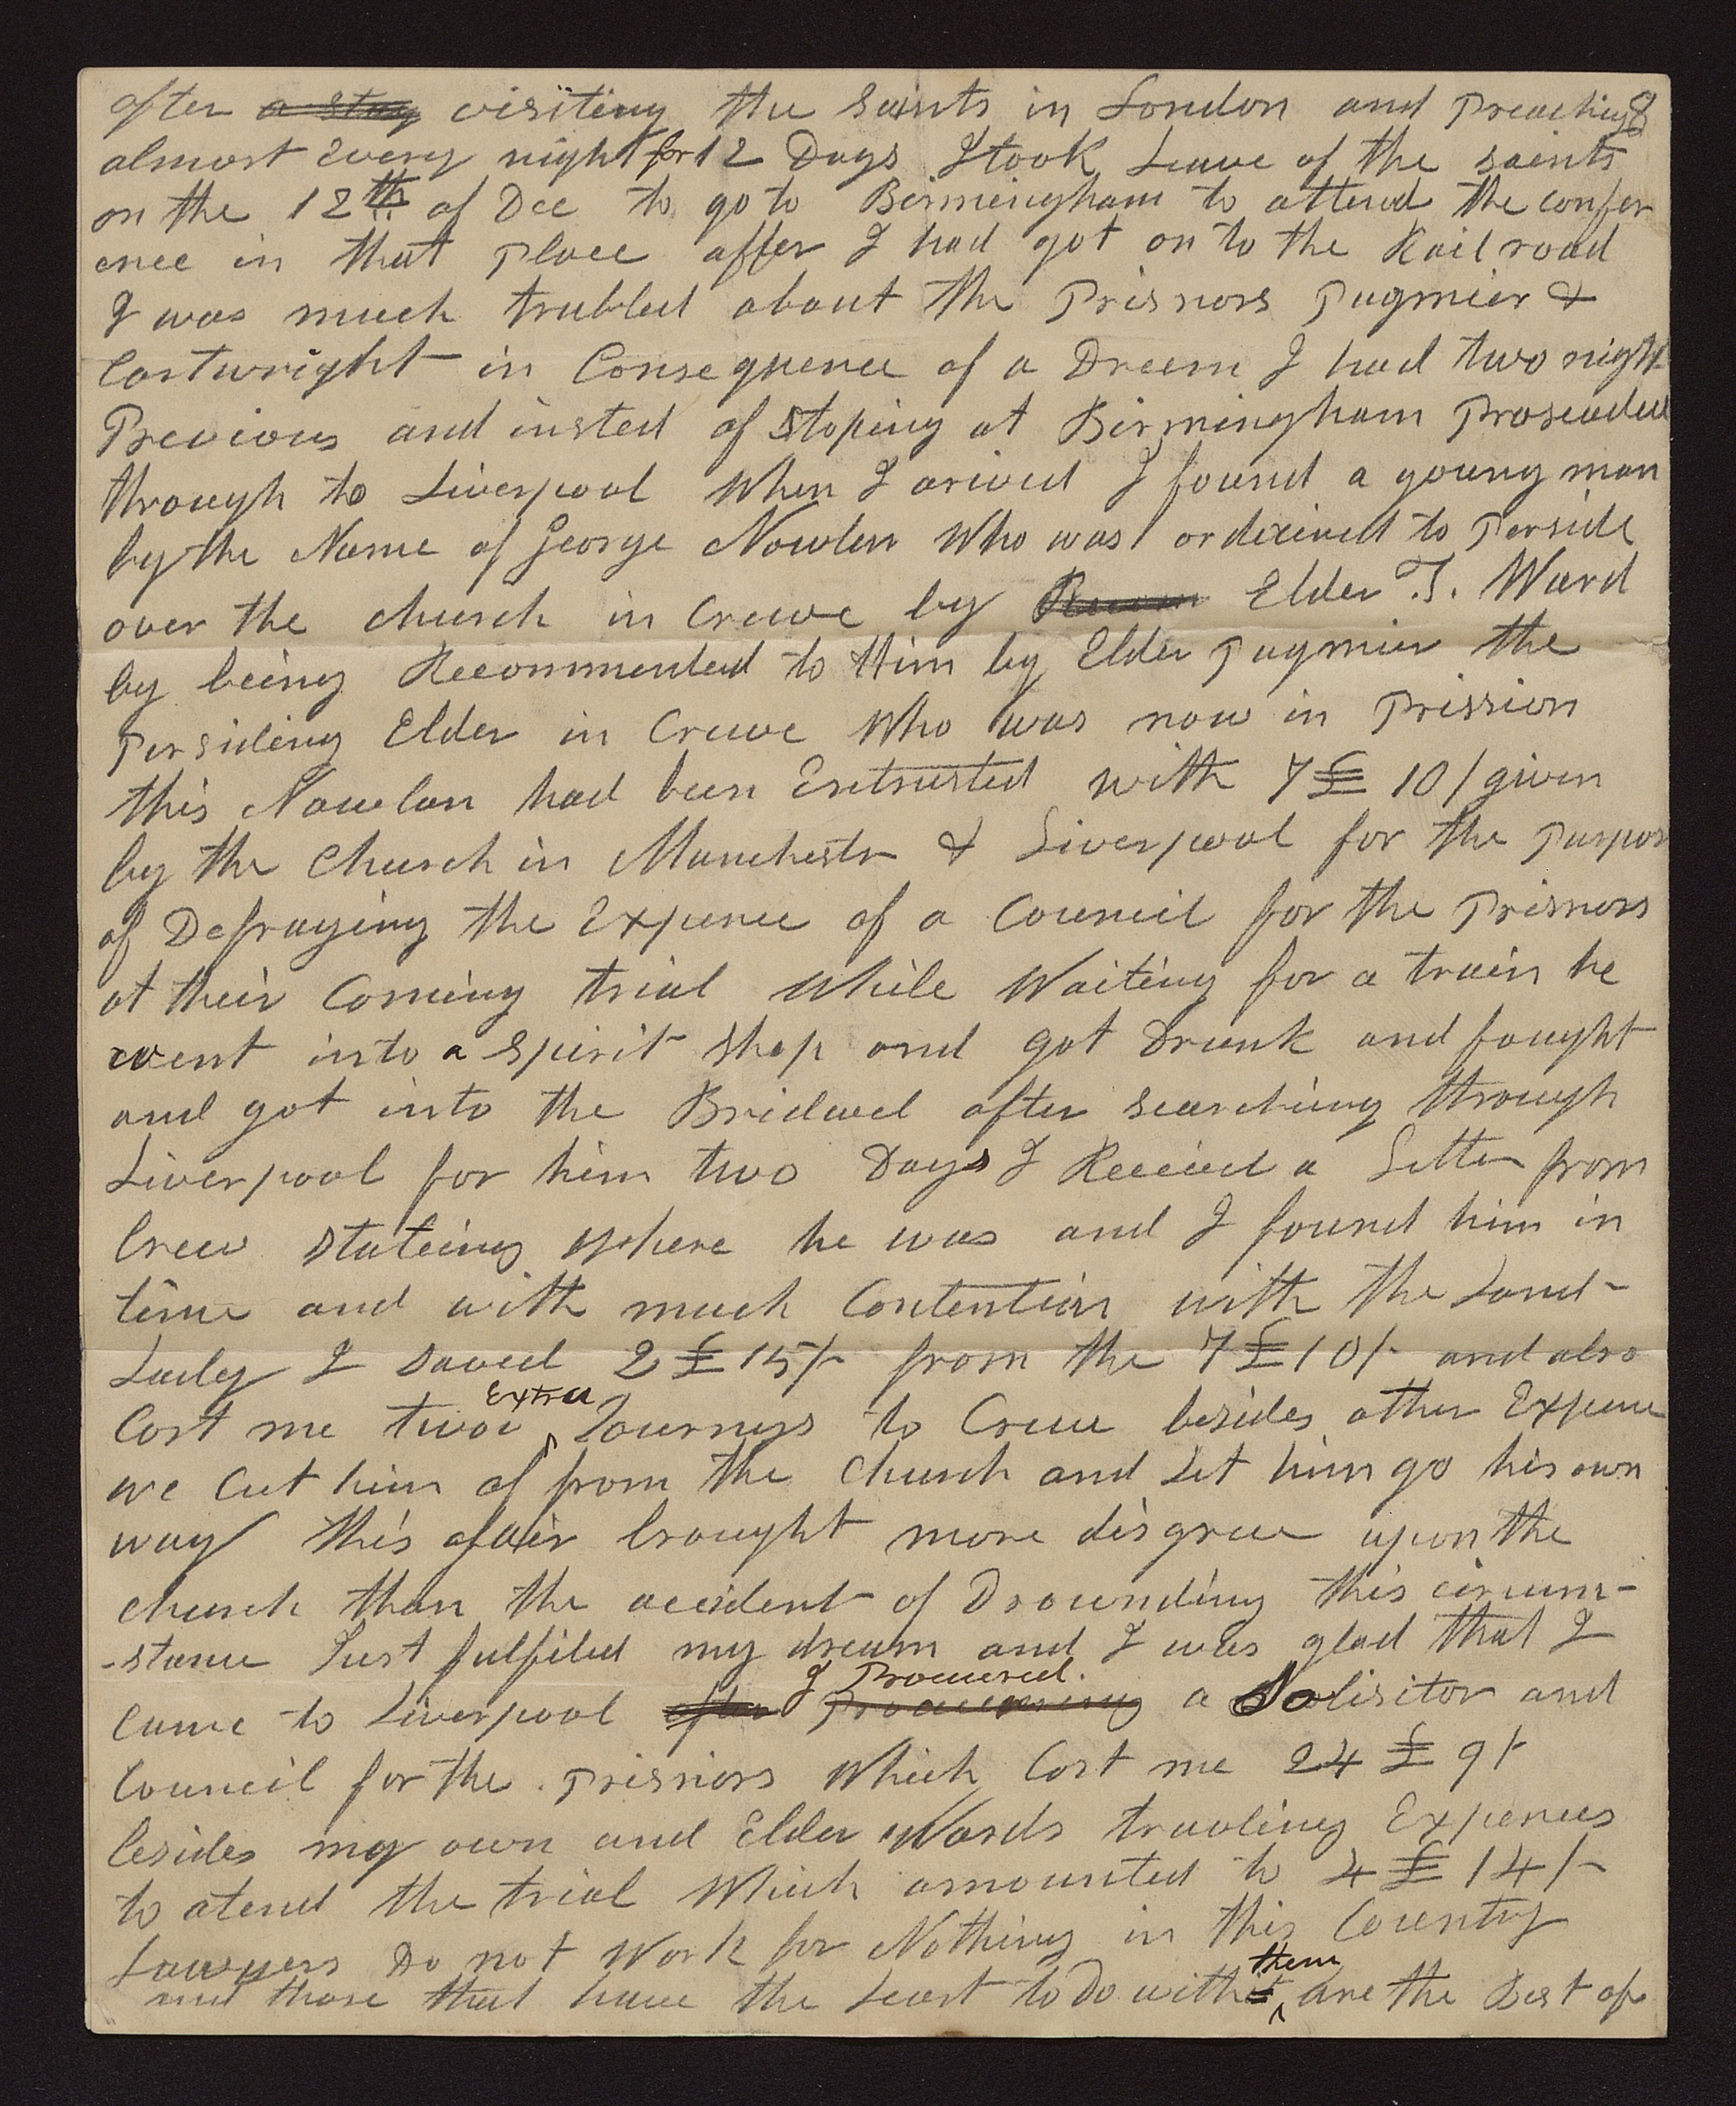 after a stay visiting the saints in London and Preaching 8
almost Every night for 12 Days I took Leave of the saints
on the 12th of Dec to go to Birmingham to attend the confer
ence in that Place after I had got on to the Rail road
I was much trubled about the Prisnors Pugmier &
Cartwright in Consequence of a Dreem I had two night
Previous and insted of Stoping at Birmingham Proseaded
through to Liverpool When I arived I found a young man
by the Name of George Nowlen Who was ordained to Perside
over the church in Crewe by Elder T. Ward
by being Recommended to Him by Elder Pugmier the
Persiding Elder in Crewe Who was now in Prission
this Nowlan had been Entrusted with 7£ 10/ given
by the Church in Manchestr & Liverpool for the Purpos
of Defraying the Expence of a Council for the Prisnors
at their Coming trial While Waiting for a train he
went into a Spirit Shop and got Drunk and fought
and got into the Bridwel after searching through
Liverpool for him two Days I Received a Letter from
Crew Stateing where he was and I found him in
time and with much Contention with the Land-
Lady I Saved 2£ 15/- from the 7£ 10/- and also
Cost me two Extra Journeys to Crewe besides other Expence
we Cut him of from the Church and Let him go his own
way this afair brought more disgrace upon the
church than the accident of Drounding this circum-
-stance Just fulfiled my dream and I was glad that I
Came to Liverpool after Procureing I Procured. a Solisitor and
Council for the Prisnors Which Cost me 24£ 9/-
besides my own and Elder Wards travling Expences
to atend the trial Which amounted to 4£ 14/-
Lawyers Do not Work for Nothing in this Country
and those that have the Least to Do with it them are the Best of